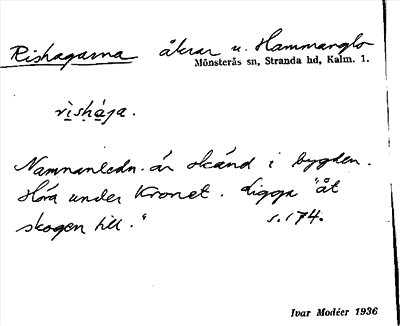 Rishagarna åkrar u. Hammanglo
Mönsterås sn, Stranda hd, Kalm. l.
rìsḥàga.
Namnanledn. är okänd i bygden.
Höra under Kronet. Ligga "åt
skogen till." s. 174.
Ivar Modéer 1936